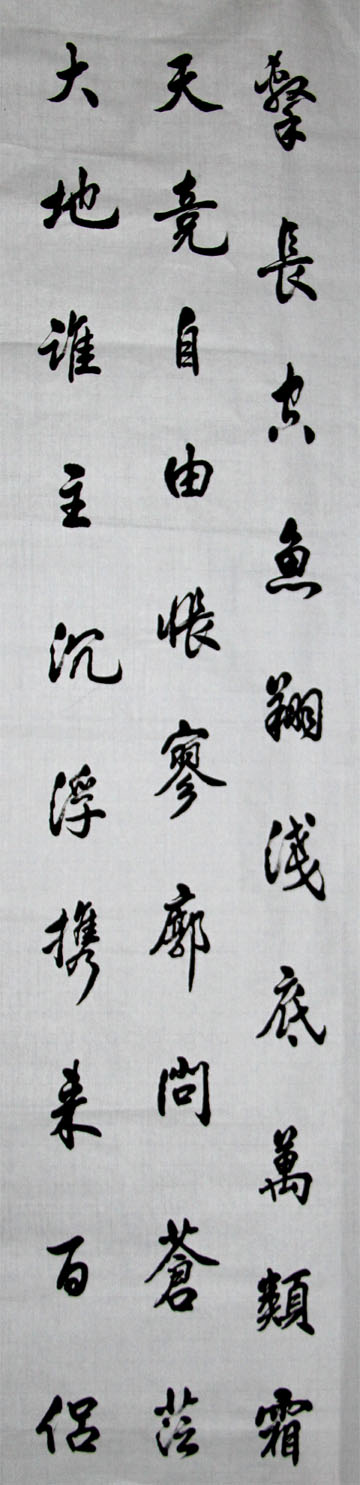 擊長空魚翔淺底萬類霜
天竞自由悵寥廓問蒼茫
大地誰主沉浮携来百侣